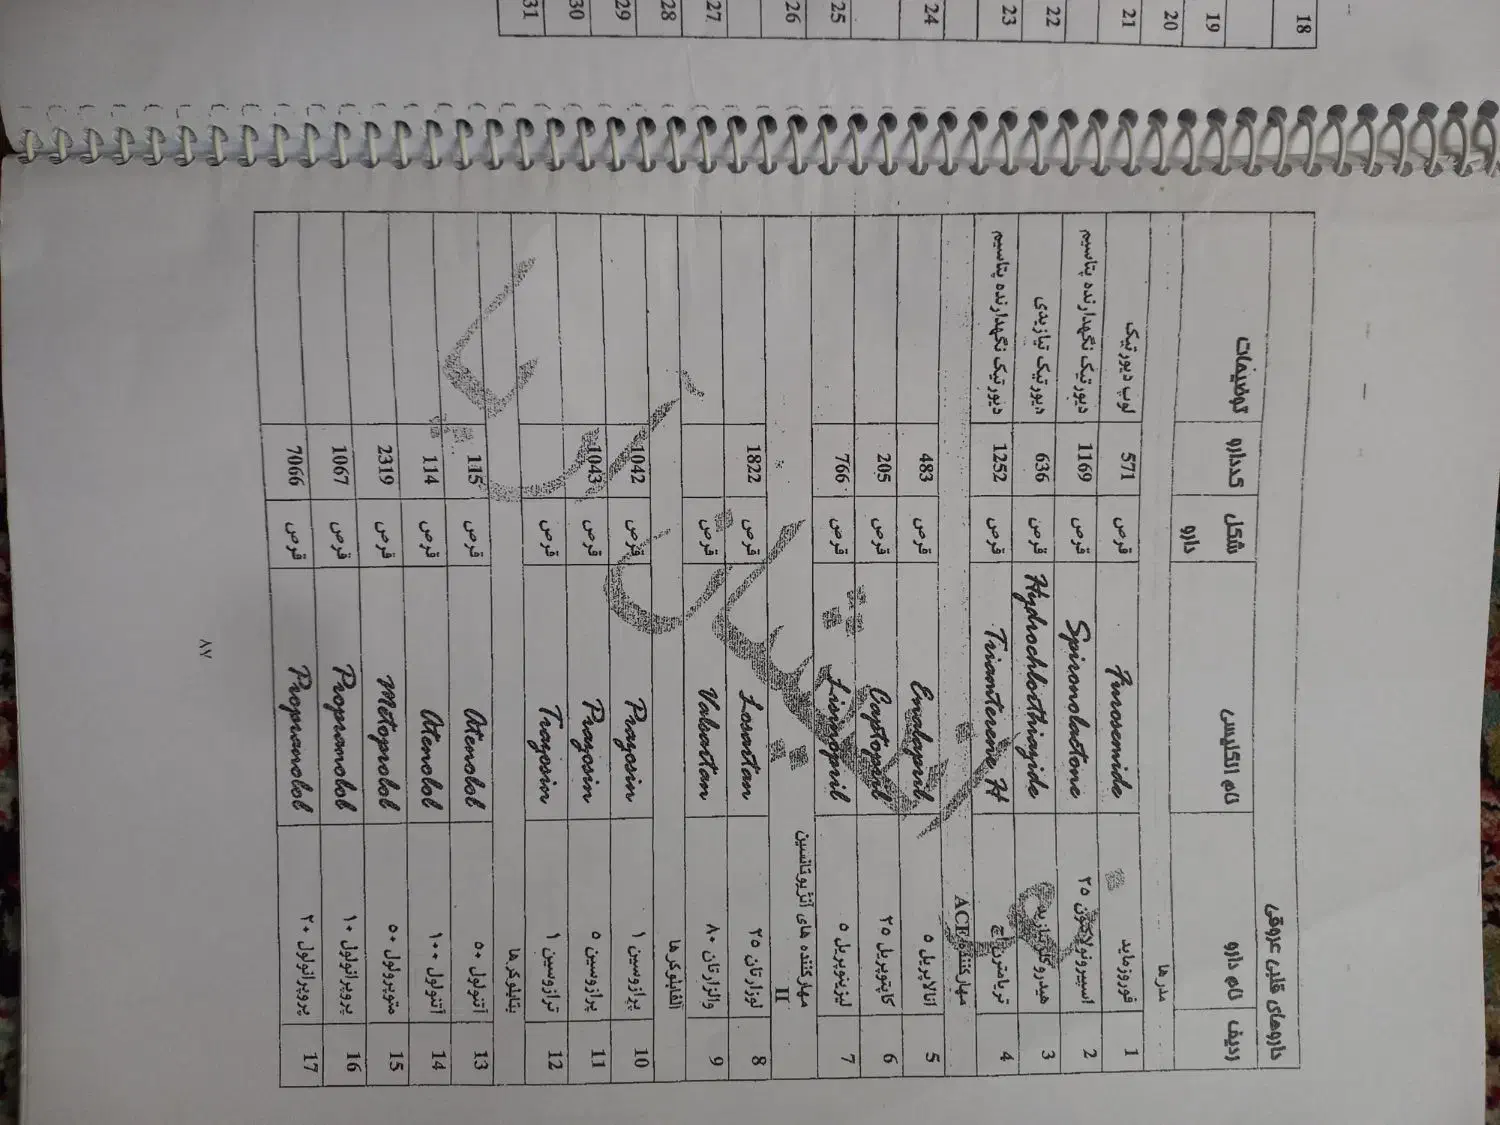 داروهای قلبی عروقی
ردیف نام دارو نام انگلیسی شکل دارو کددارو توضیحات
مدرها
1 فوروزماید Furosemide قرص 571 لوپ دیورتیک
2 اسپیرونولاکتون ۲۵ Spironolactone قرص 1169 دیورتیک نگهدارنده پتاسیم
3 هیدروکلرتیازید Hydrochlorthiazide قرص 636 دیورتیک تیازیدی
4 تریامترن اچ Triamterene H قرص 1252 دیورتیک نگهدارنده پتاسیم
مهارکننده ACE
5 انالاپریل ۵ Enalapril قرص 483
6 کاپتوپریل ۲۵ Captopril قرص 205
7 لیزینوپریل ۵ Lisinopril قرص 766
مهارکننده های آنژیوتانسین II
8 لوزارتان ۲۵ Losartan قرص 1822
9 والزارتان ۸۰ Valsartan قرص
آلفابلوکرها
10 پرازوسین ۱ Prazosin قرص 1042
11 پرازوسین ۵ Prazosin قرص 1043
12 ترازوسین ۱ Trazosin قرص
بتابلوکرها
13 آتنولول ۵۰ Atenolol قرص 115
14 آتنولول ۱۰۰ Atenolol قرص 114
15 متوپرولول ۵۰ Metoprolol قرص 2319
16 پروپرانولول ۱۰ Propranolol قرص 1067
17 پروپرانولول ۲۰ Propranolol قرص 7066
۸۷
18
19
20
21
22
23
24
25
26
27
28
29
30
31